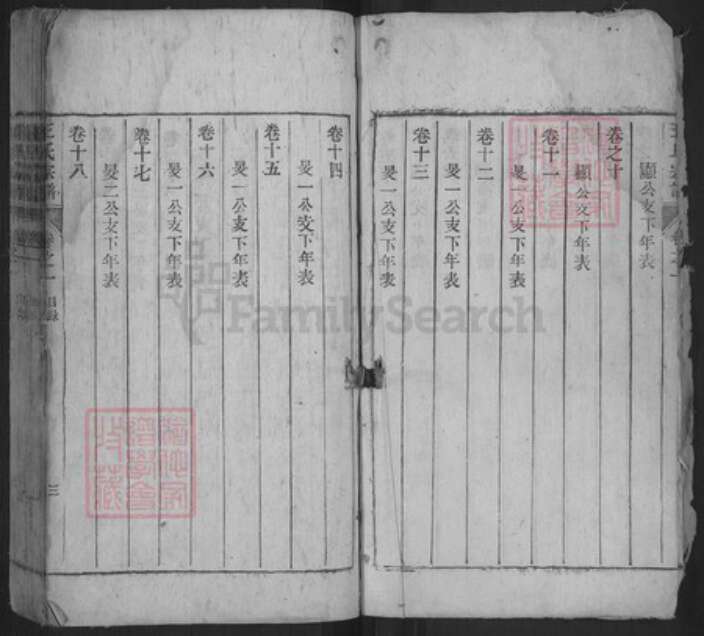 顯公支下年表
卷之十
顯公支下年表
卷十一
旻一公支下年表
卷十二
旻一公支下年表
卷十三
旻一公支下年表
卷十四
旻一公支下年表
卷十五
旻一公支下年表
卷十六
旻一公支下年表
卷十七
旻二公支下年表
卷十八
王氏宗譜
卷之一
目錄
三
FamilySearch